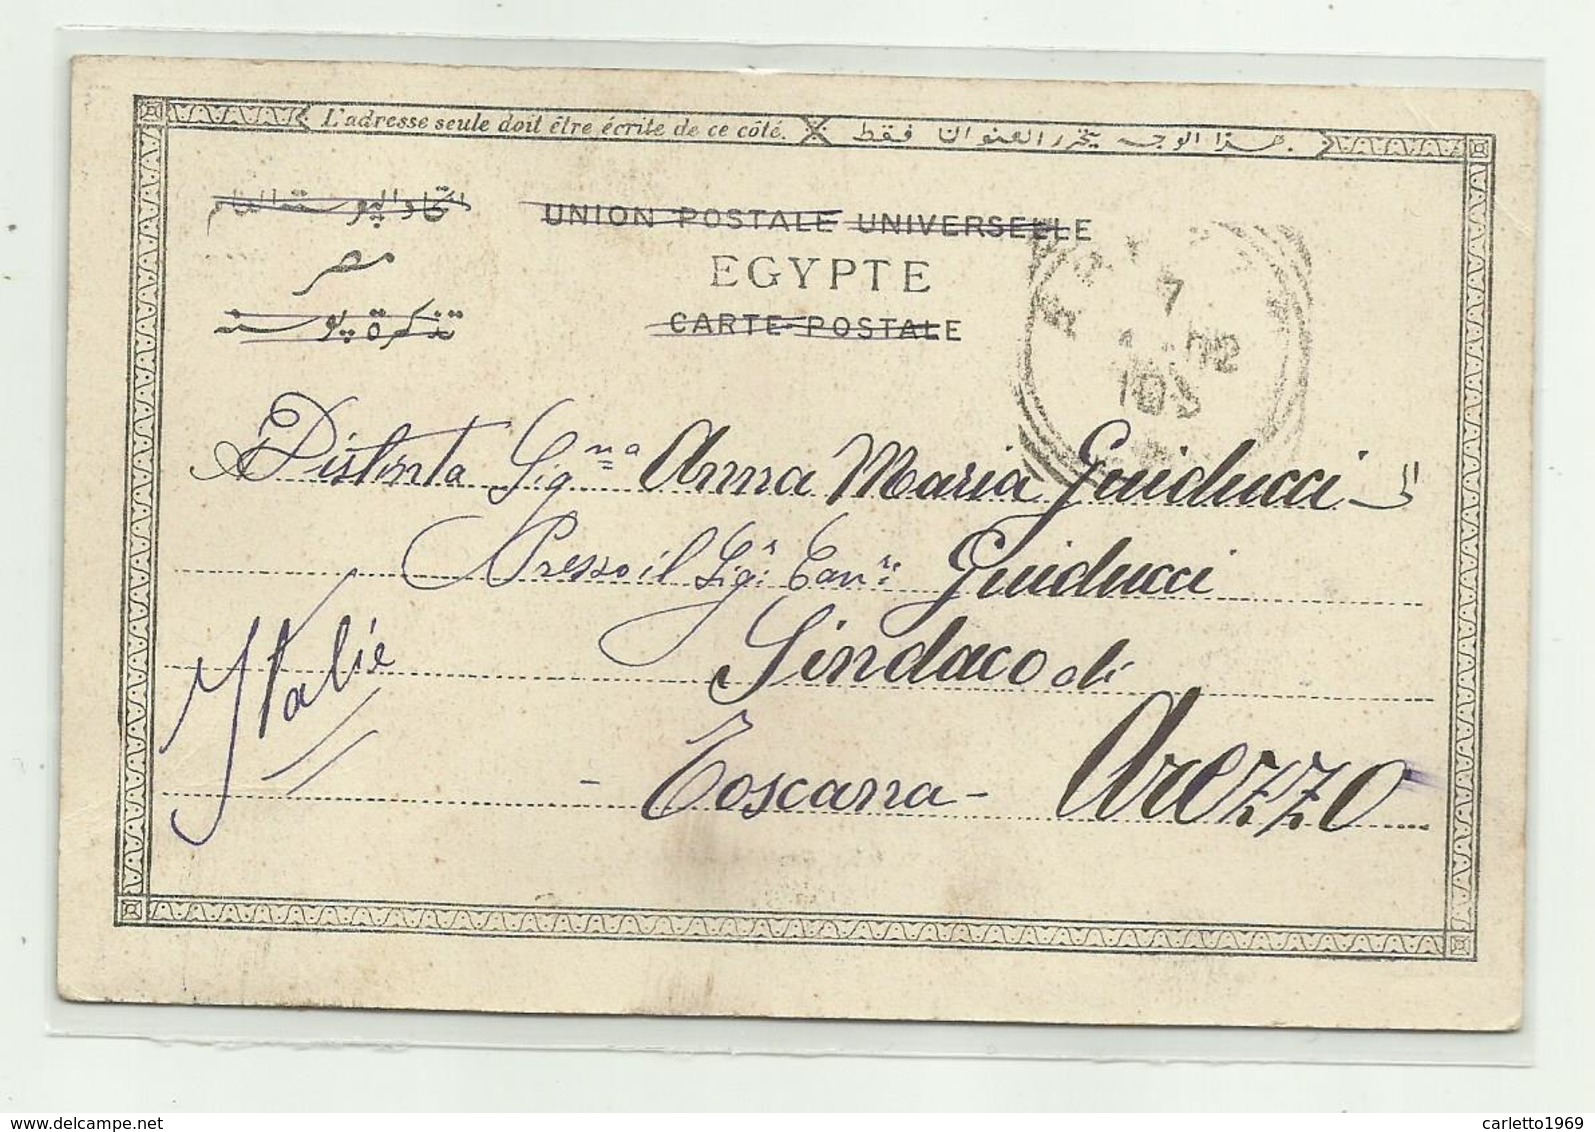 L'adresse seule doit être écrite de ce côté. بهذا الوجه يحرر العنوان فقط.
اتحاد البوسته العام UNION POSTALE UNIVERSELLE
مصر EGYPTE
تذكرة بوسته CARTE POSTALE
7
02
Distinta Sig.na Anna Maria Guiducci
Presso il Sig.r Cav.re Guiducci
Italie
Sindaco di
- Toscana - Arezzo
delcampe.net
carletto1969